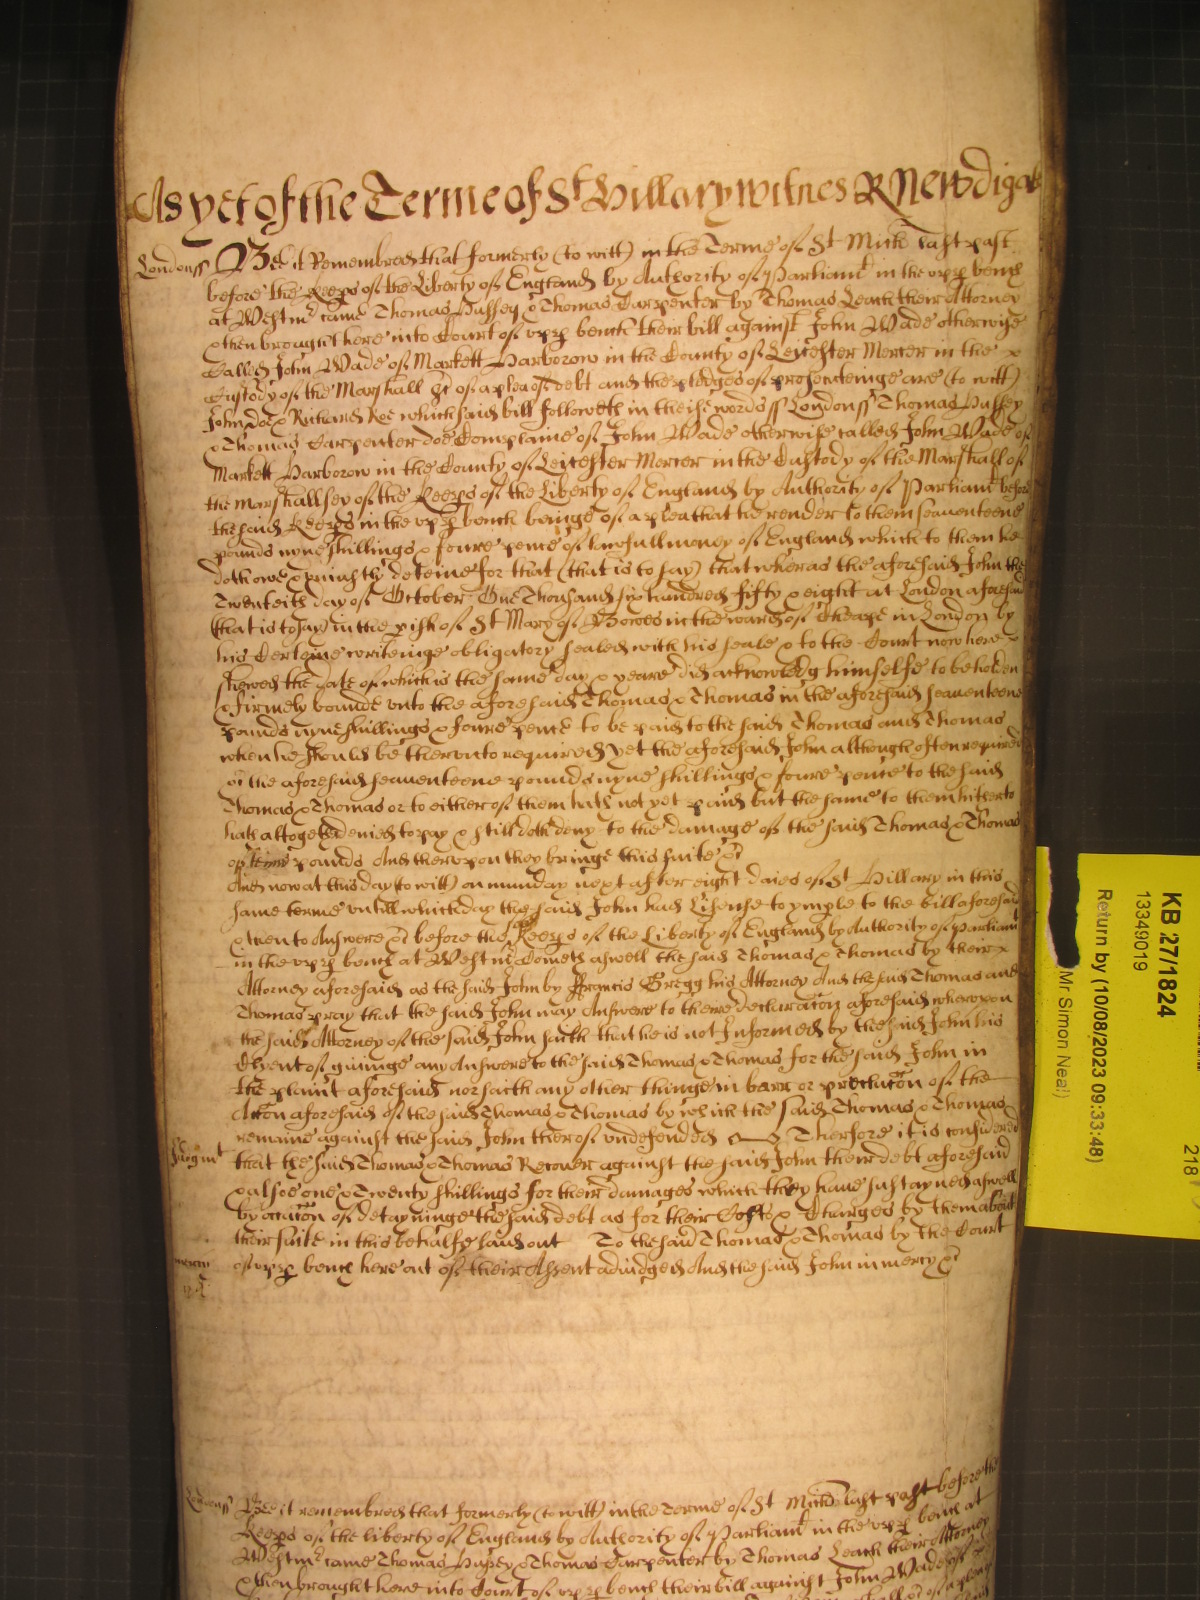 As yet of the Terme of St Hillary witnes R Newdigat
Londonss Bee it Remembred that formerly (to witt) in the Terme of St Mich last past
before the Keeps of the Liberty of England by Authority of Parliamt in the upp bench
at Westmr came Thomas Hussey & Thomas Carpenter by Thomas Leach their Attorney
& then brought here into Court of upp bench their bill against John Wade otherwise
Called John Wade of Markett Harborow in the County of Leicester Mercer in the x
Custody of the Marshall &c of a plea of debt and the pledges of prosecuteinge are (to witt)
John Doe & Richard Roe which said bill followeth in theise words ss Londonss Thomas Hussey
& Thomas Carpenter doe Complaine of John Wade otherwise called John Wade of
Markett Harborow in the County of Leicester Mercer in the Custody of the Marshall of
the Marshallsey of the Keeps of the Liberty of England by Authority of Parliamt before
the said Keeps in the upp bench beinge of a plea that he render to them seaventeene
pounds nyne shillings & foure pence of lawfull money of England which to them he
doth owe & uniustly deteine for that (that is to say) that wheras the aforesaid John the
Twentieth day of October One Thousand six hundred fifty & eight at London aforesaid
(that is to say) in the pish of St Mary of Bowes in the ward of Cheape in London by
his Certeine writeinge obligatory sealed with his seale & to the Court now here
shewed the date of which is the same day & yeare did acknowledg himselfe to be holden
& firmely bound unto the aforesaid Thomas & Thomas in the aforesaid seaventeene
pounds nyne shillings & foure pence to be paid to the said Thomas and Thomas
when he should be therunto required yet the aforesaid John although often required
the aforesaid seaventeene pounds nyne shillings & foure pence to the said
Thomas & Thomas or to either of them hath not yet paid but the same to them hitherto
hath altogether denied to pay & still doth deny to the damage of the said Thomas & Thomas
of tenn pounds And therupon they bringe this suite &c
And now at this day (to witt) on munday next after eight daies of St Hillary in this
same terme untill which day the said John had Lisense to imple to the bill aforesaid
& then to Answere &c before the Keeps of the Liberty of England by Authority of Parliamt
in the upp bench at Westmr Cometh aswell the said Thomas & Thomas by their x
Attorney aforesaid as the said John by Francis Gregg his Attorney And the said Thomas and
Thomas pray that the said John may Answere to theire declaracon aforesaid wherupon
the said Attorney of the said John saith that he is not Informed by the said John his
Clyent of giuinge any Answere to the said Thomas & Thomas for the said John in
the plaint aforesaid nor saith any other thinge in barr or preclucon of the
Accon aforesaid of the said Thomas & Thomas by which the said Thomas & Thomas
remaine against the said John therof undefended Therfore it is considered
Judgmt that the said Thomas & Thomas Recover against the said John their debt aforesaid
& alsoe one & Twenty shillings for their damages which they have sustayned aswell
by occacon of detayninge the said debt as for their Costs & Charges by them about
their suite in this behalfe laid out To the said Thomas & Thomas by the Court
mercy of upp bench here out of their Assent adiudged And the said John in mercy &c
Londonss Bee it remembred that formerly (to witt) in the Terme of St Mich last past before the
Keeps of the liberty of England by Authority of Parliamt in the upp bench at
Westmr came Thomas Hussey & Thomas Carpenter by Thomas Leach their Attorney
& then brought here into Court of upp bench their bill against John Wade
KB 27/1824
13349019
Return by (10/08/2023 09:33:48)
Mr Simon Neal)
218